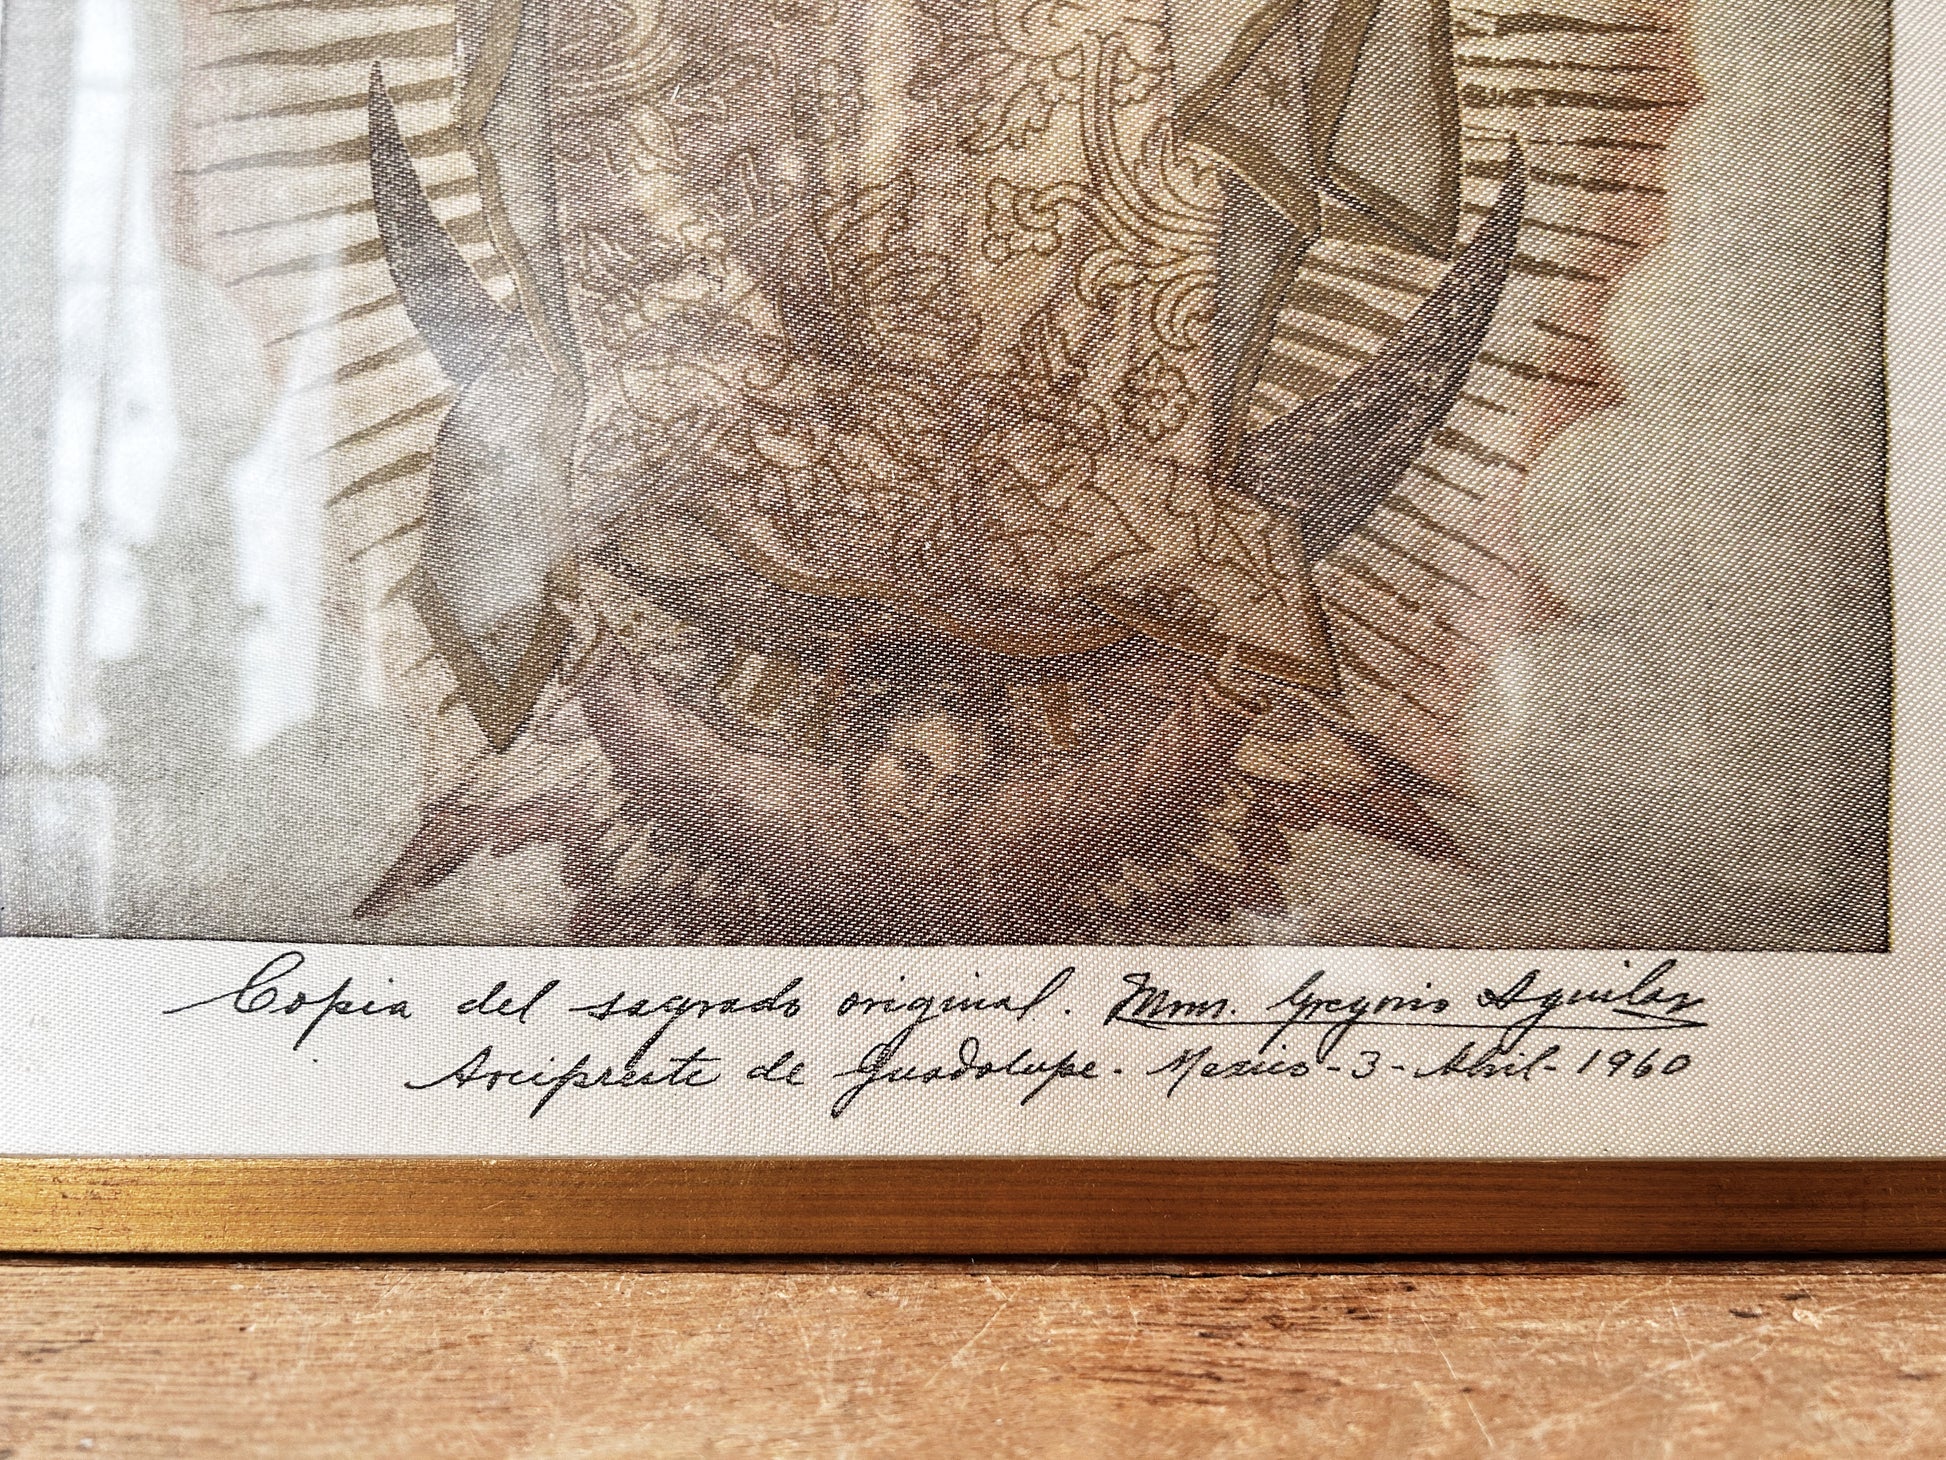 Copia del sagrado original. Mons. Gregorio Aguilar
Arcipreste de Guadalupe. Mexico - 3 - Abril - 1960